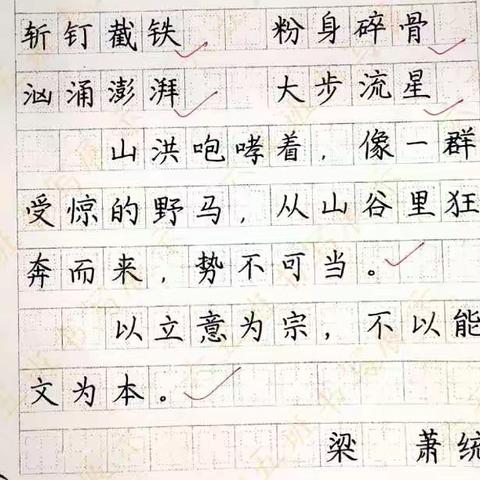 斩钉截铁 粉身碎骨
汹涌澎湃 大步流星
山洪咆哮着，像一群
受惊的野马，从山谷里狂
奔而来，势不可当。
以立意为宗，不以能
文为本。
梁 萧统